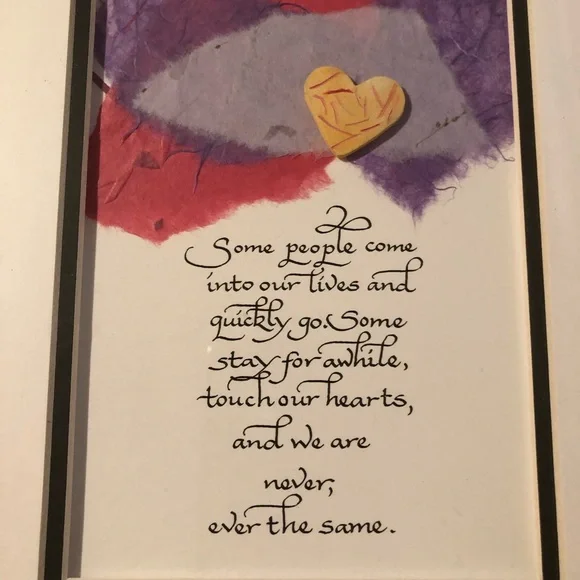 Some people come
into our lives and
quickly go. Some
stay for awhile,
touch our hearts,
and we are
never,
ever the same.